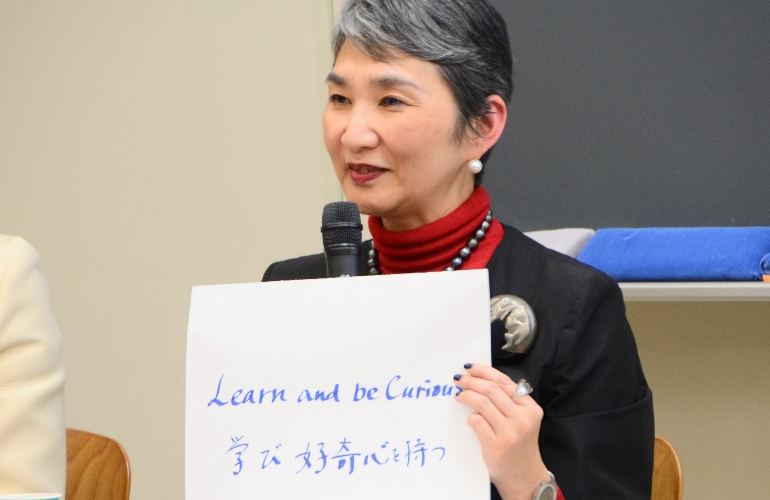 Learn and be Curious
学び 好奇心を持つ